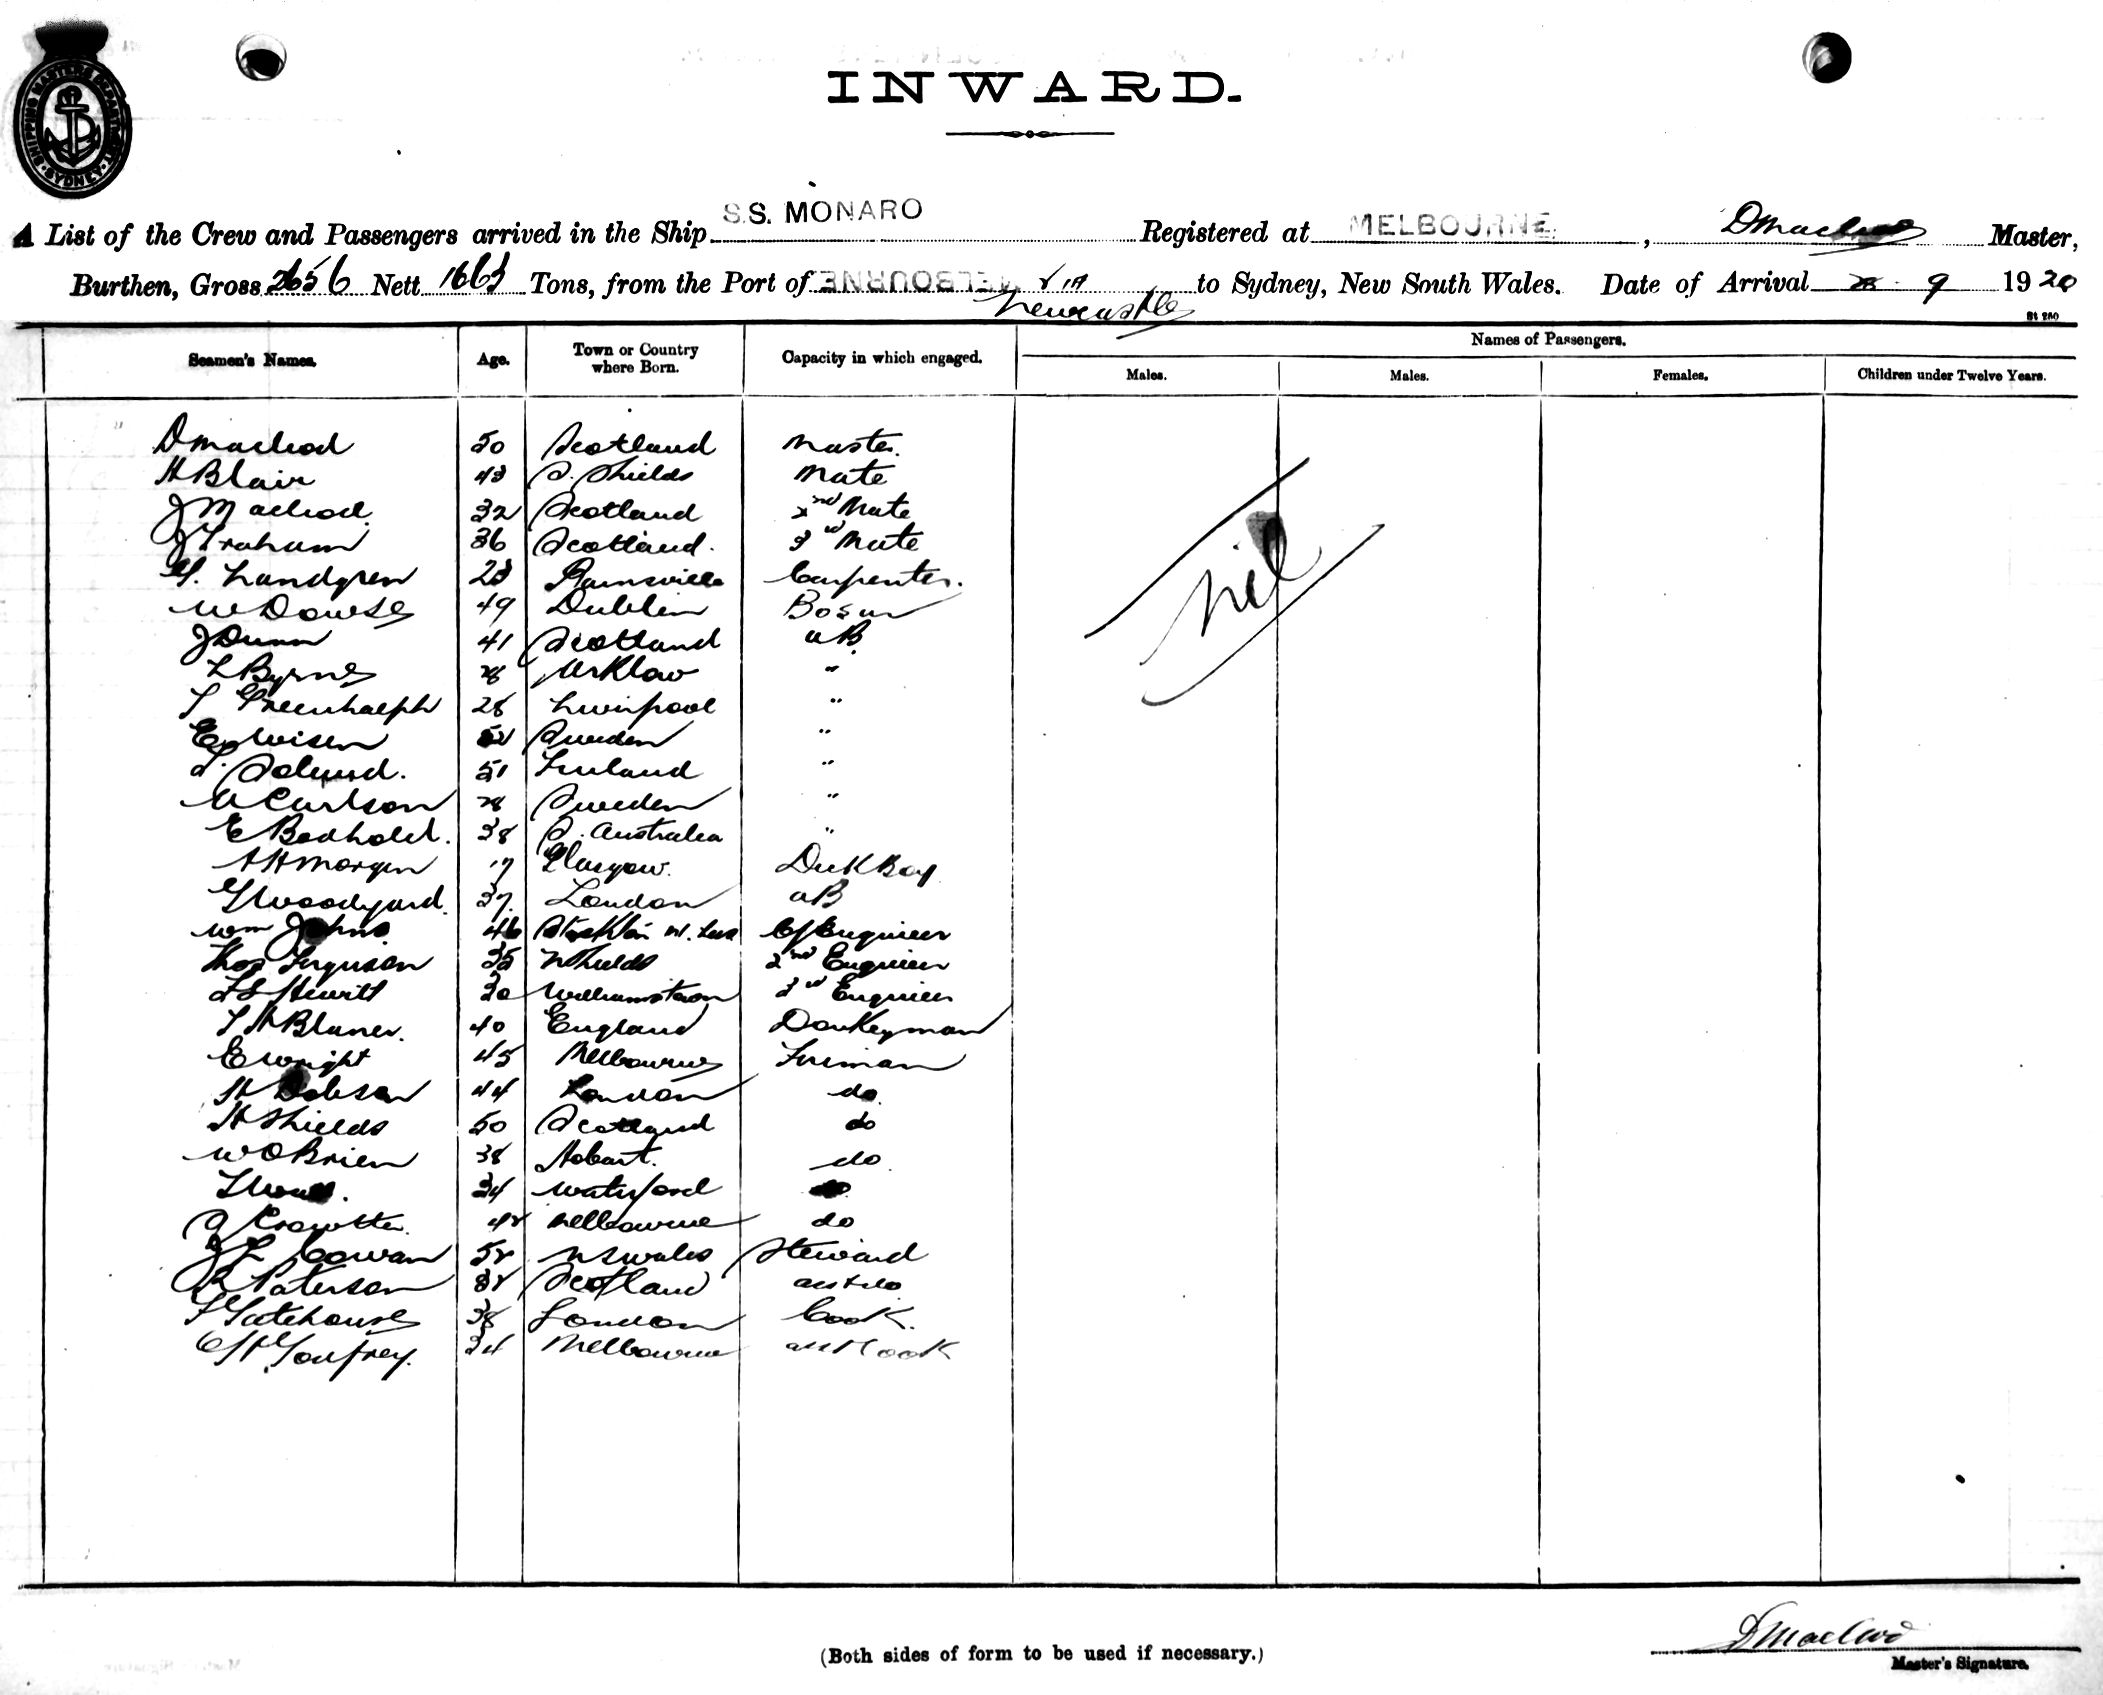 SHIPPING MASTER'S DEPARTMENT
SYDNEY
INWARD.
A List of the Crew and Passengers arrived in the Ship S.S. MONARO Registered at MELBOURNE, D Macleod Master,
Burthen, Gross 2656 Nett 1663 Tons, from the Port of MELBOURNE via Newcastle to Sydney, New South Wales. Date of Arrival 9 1920
Seamen's Names. Age. Town or Country where Born. Capacity in which engaged. Names of Passengers.
Males. Males. Females. Children under Twelve Years.
D Macleod 50 Scotland Master.
H Blair 43 S. Shields Mate
J Macleod. 32 Scotland 2nd Mate
J Graham 36 Scotland. 3rd Mate
G. Landgren 23 Carpenter.
W Dowse 49 Dublin Bosun
J Dunn 41 Scotland AB
L Byrne 28 Arklow "
T Greenhalgh 28 Liverpool "
E Sweden "
51 Finland "
A Carlson 28 Sweden "
E 38 S. Australia "
A H Morgan 17 Glasgow. Deck Boy
G Woodyard. 37. London AB
Wm Johns 46 Stockton C/Engineer
Thos Ferguson 35 N Shields 2nd Engineer
Hewitt 30 Williamstown 3rd Engineer
T H 40 England Donkeyman
E Wright 45 Melbourne Fireman
H Dobson 44 London do
H Shields 50 Scotland do
W O Brien 38 Hobart. do
34 Waterford do
42 Melbourne do
J L Cowan 52 N S Wales Steward
R Paterson 32 Scotland
F Gatehouse 38 London Cook.
C H Godfrey. 34 Melbourne asst Cook
Nil
(Both sides of form to be used if necessary.)
D Macleod
Master's Signature.